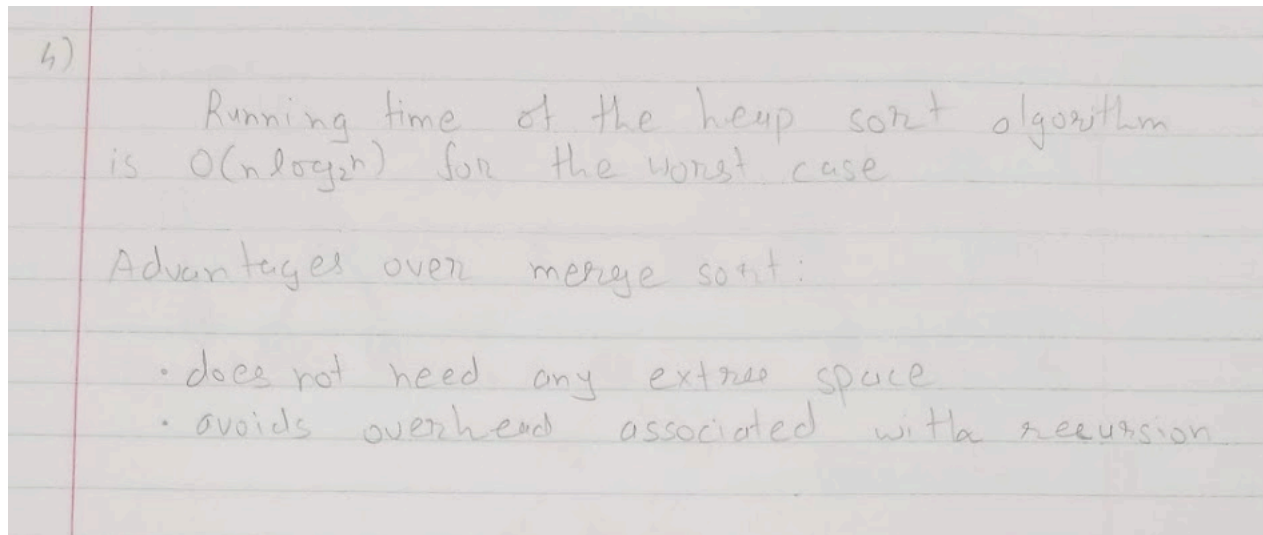 4)
Running time of the heap sort algorithm
is O(n log₂n) for the worst case
Advantages over merge sort:
• does not need any extra space
• avoids overhead associated with recursion